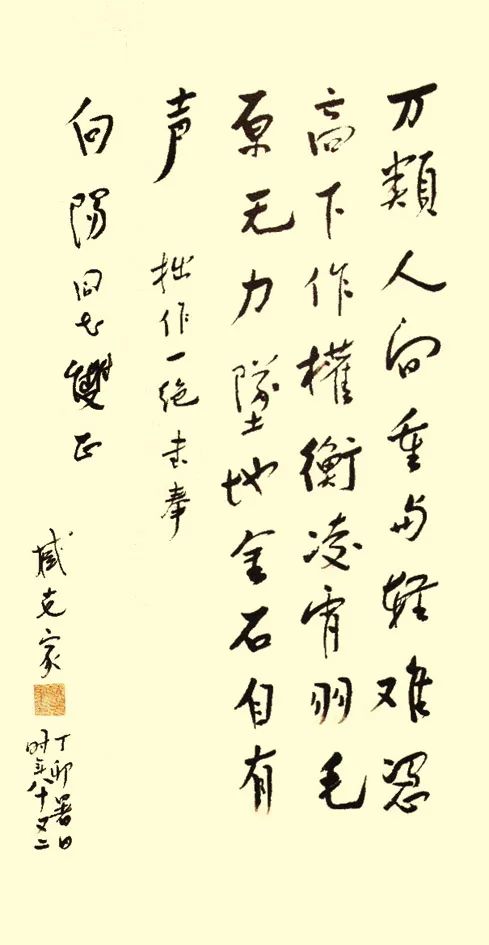 万類人间重与輕难憑
高下作權衡凌宵羽毛
原无力墜地金石自有
声 拙作一絶書奉
向陽同志雙正
臧克家
丁卯暑日
时年八十又二